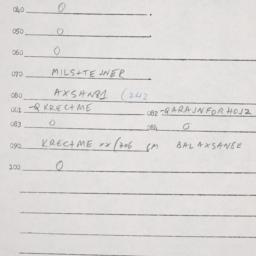 040 0
050 0
060 0
070 MILSTEINER
080 AXSAN81 (242
081 -QKRECTME 082 -QARAINFORHO12
083 0 084 0
090 KRECTME xx/206 SM BALAXSANGE
100 0